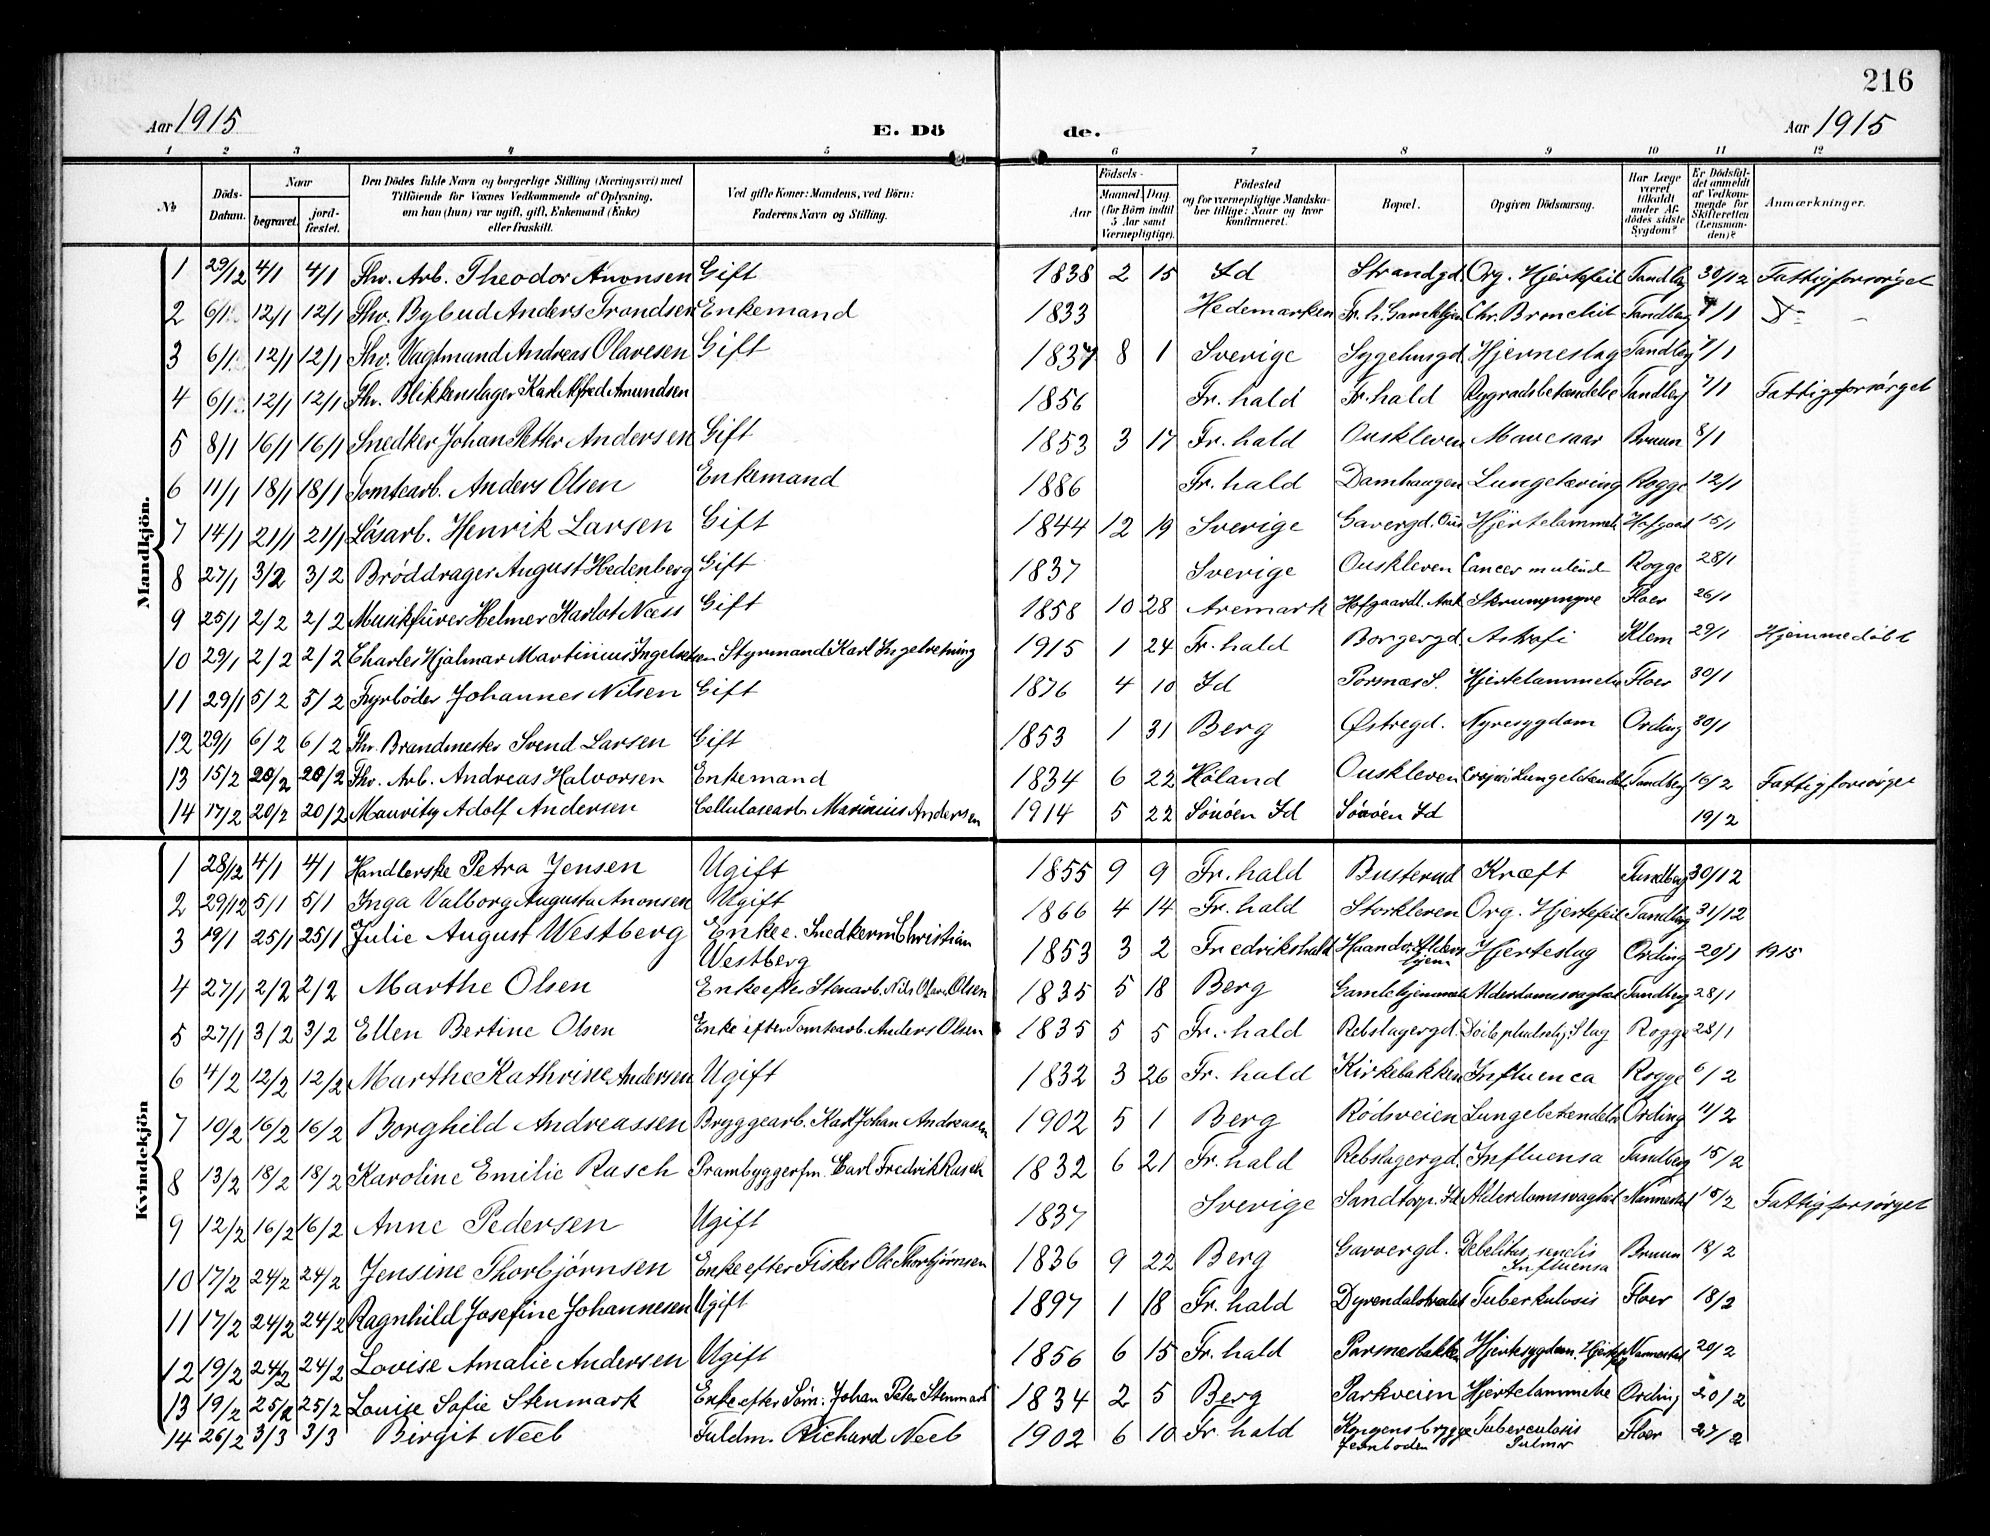 216
Aar 1915
E. Dö
de.
Aar 1915
1 2 3 4 5 6 7 8 9 10 11 12
No
Döds-Datum.
Naar
begravet.
jord-fæstet.
Den Dödes fulde Navn og borgerlige Stilling (Næringsvei) med
Tilföiende for Voxnes Vedkommende af Oplysning,
om han (hun) var ugift, gift, Enkemand (Enke)
eller fraskilt.
Ved gifte Koner: Mandens, ved Börn:
Faderens Navn og Stilling.
Födsels-
Aar
Maaned
Dag
(for Börn indtil
5 Aar samt
Værnepligtige).
Födested
og for værnepligtige Mandska-
ber tillige: Naar og hvor
konfirmeret.
Bopæl.
Opgiven Dödsaarsag.
Har Læge
været
tilkaldt
under Af-
dödes sidste
Sygdom?
Er Dödsfal-
det anmeldt
af Vedkom-
mende for
Skifteretten
(Lensman-
den)?
Anmærkninger.
Mandkjön.
1 29/12 4/1 4/1 Fhv. Arb. Theodor Anonsen Gift 1838 2 15 Id Strandgd. Org. Hjertefeil Tandberg 30/12 Fattigforsørget
2 6/1 12/1 12/1 Fhv. Bybud Anders Trondsen Enkemand 1833 Hedemarken Fr.h. Gamlehjem Chr. Bronchit Tandberg 7/1
3 6/1 12/1 12/1 Fhv. Vagtmand Andreas Olavesen Gift 1837 8 1 Sverige Sygehusgd. Hjerneslag Tandberg 7/1
4 6/1 12/1 12/1 Fhv. Blikkenslager Karl Alfred Amundsen 1856 Fr. hald Fr. hald Rygradsbetændelse Tandberg 7/1 Fattigforsørget
5 8/1 16/1 16/1 Snedker Johan Petter Andersen Gift 1853 3 17 Fr. hald Ouskleven Mavesaar Bruun 8/1
6 11/1 18/1 18/1 Tomtearb. Anders Olsen Enkemand 1886 Fr. hald Damhaugen Lungetæring Rogge 12/1
7 14/1 21/1 21/1 Løsarb. Henrik Larsen Gift 1844 12 19 Sverige Garvergd. Hjertelammelse Hofgaard 15/1
8 27/1 3/2 3/2 Brøddrager August Hedenberg Gift 1837 Sverige Ouskleven Cancer Rogge 28/1
9 25/1 2/2 2/2 Musikfører Helmer Karlot Næss Gift 1858 10 28 Aremark Skrumpnyre Floer 26/1
10 29/1 2/2 2/2 Charles Hjalmar Martinius Ingelsen Styrmand Karl 1915 1 24 Fr. hald Borgergd. Astrofi Klem 29/1 Hjemmedøbt
11 29/1 5/2 5/2 Fyrbøder Johannes Nilsen Gift 1876 4 10 Id Porsnæs S. Hjertelammelse Floer 30/1
12 29/1 6/2 6/2 Fhv. Brandmester Svend Larsen Gift 1853 1 31 Berg Østregd. Nyresygdom Ording 30/1
13 15/2 20/2 20/2 Fhv. Arb. Andreas Halvorsen Enkemand 1834 6 22 Høland Ouskleven Tandberg 16/2 Fattigforsørget
14 17/2 20/2 20/2 Mauritz Adolf Andersen Cellulosearb. Marinius Andersen 1914 5 22 Id Id 19/2
Kvindekjön
1 28/12 4/1 4/1 Handlerske Petra Jensen Ugift 1855 9 9 Fr. hald Busterud Kræft Tandberg 30/12
2 29/12 5/1 5/1 Inga Valborg Augusta Anonsen Ugift 1866 4 14 Fr. hald Storkleven Org. Hjertefeil Tandberg 31/12
3 19/1 25/1 25/1 Julie August Westberg Enke e. Snedkerm. Christian
Westberg 1853 3 2 Fredrikshald Haandv. Alders
hjem Hjerteslag Ording 20/1 1915
4 27/1 2/2 2/2 Marthe Olsen Enke efter Stenarb. Nils Olav Olsen 1835 5 18 Berg Gamlehjemmet Alderdomssvaghed Tandberg 28/1
5 27/1 3/2 3/2 Ellen Bertine Olsen Enke efter Tomtearb. Anders Olsen 1835 5 5 Fr. hald Rebslagergd. Slag Rogge 28/1
6 4/2 12/2 12/2 Marthe Kathrine Andersen Ugift 1832 3 26 Fr. hald Kirkebakken Influenca Rogge 6/2
7 10/2 16/2 16/2 Borghild Andreassen Bryggearb. Karl Johan Andreasen 1902 5 1 Berg Rødsveien Lungebetændelse Ording 11/2
8 13/2 18/2 18/2 Karoline Emilie Rasch Prambyggerfm. Carl Fredrik Rasch 1832 6 21 Fr. hald Rebslagergd. Influensa Tandberg 15/2
9 12/2 16/2 16/2 Anne Pedersen Ugift 1837 Sverige Sandtorp. Id Alderdomssvaghed Nannestad 15/2 Fattigforsørget
10 17/2 24/2 24/2 Jensine Thorbjørnsen Enke efter Fisker Ole Thorbjørnsen 1836 9 22 Berg Garvergd. Debelitas senilis
Influensa Bruun 18/2
11 17/2 24/2 24/2 Ragnhild Josefine Johannesen Ugift 1897 1 18 Fr. hald Tuberkulosis Floer 18/2
12 19/2 24/2 24/2 Lovise Amalie Andersen Ugift 1856 6 15 Fr. hald Porsnesbakken Hjertesygdom. Nannestad 20/2
13 19/2 25/2 25/2 Louise Sofie Stenmark Enke efter Søm. Johan Peter Stenmark 1834 2 5 Berg Parkveien Hjertelammelse Ording 20/2
14 26/2 3/3 3/3 Birgit Neeb Fuldm. Richard Neeb 1902 6 10 Fr. hald Kongens brygge
Jernboden Tuberculosis
Pulmor Floer 27/2